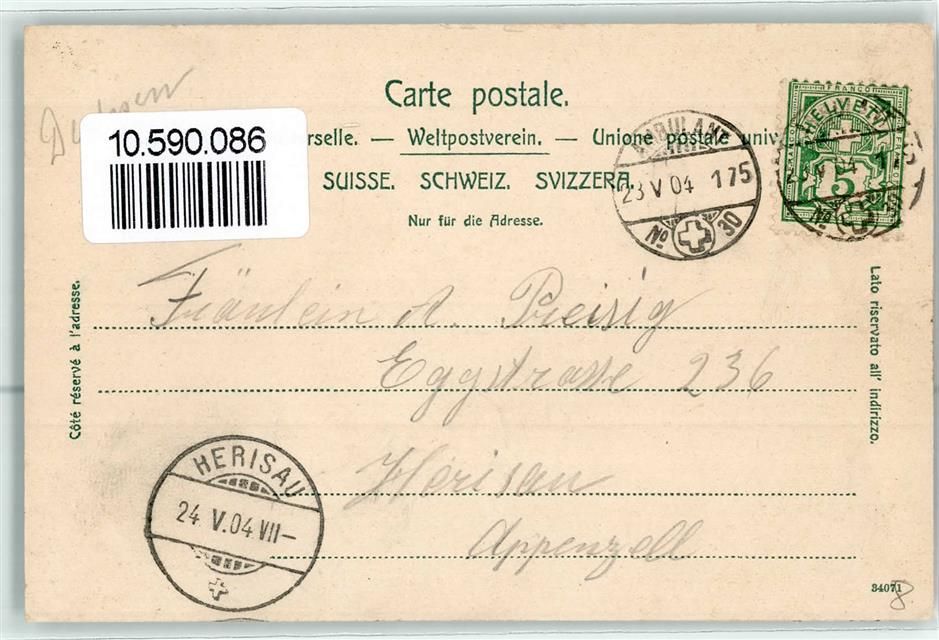 Carte postale.
10.590.086
rselle. — Weltpostverein. — Unione postale univ
SUISSE. SCHWEIZ. SVIZZERA.
Nur für die Adresse.
AMBULANT
23 V 04 175
No 30
FRANCO
HELVETIA
23 V 04 175
5
No 30
Côté réservé à l'adresse.
Lato riservato all' indirizzo.
Fräulein A. Preisig
Eggstrasse 236
Herisau
Appenzell
HERISAU
24 V.04 VII–
34071
8